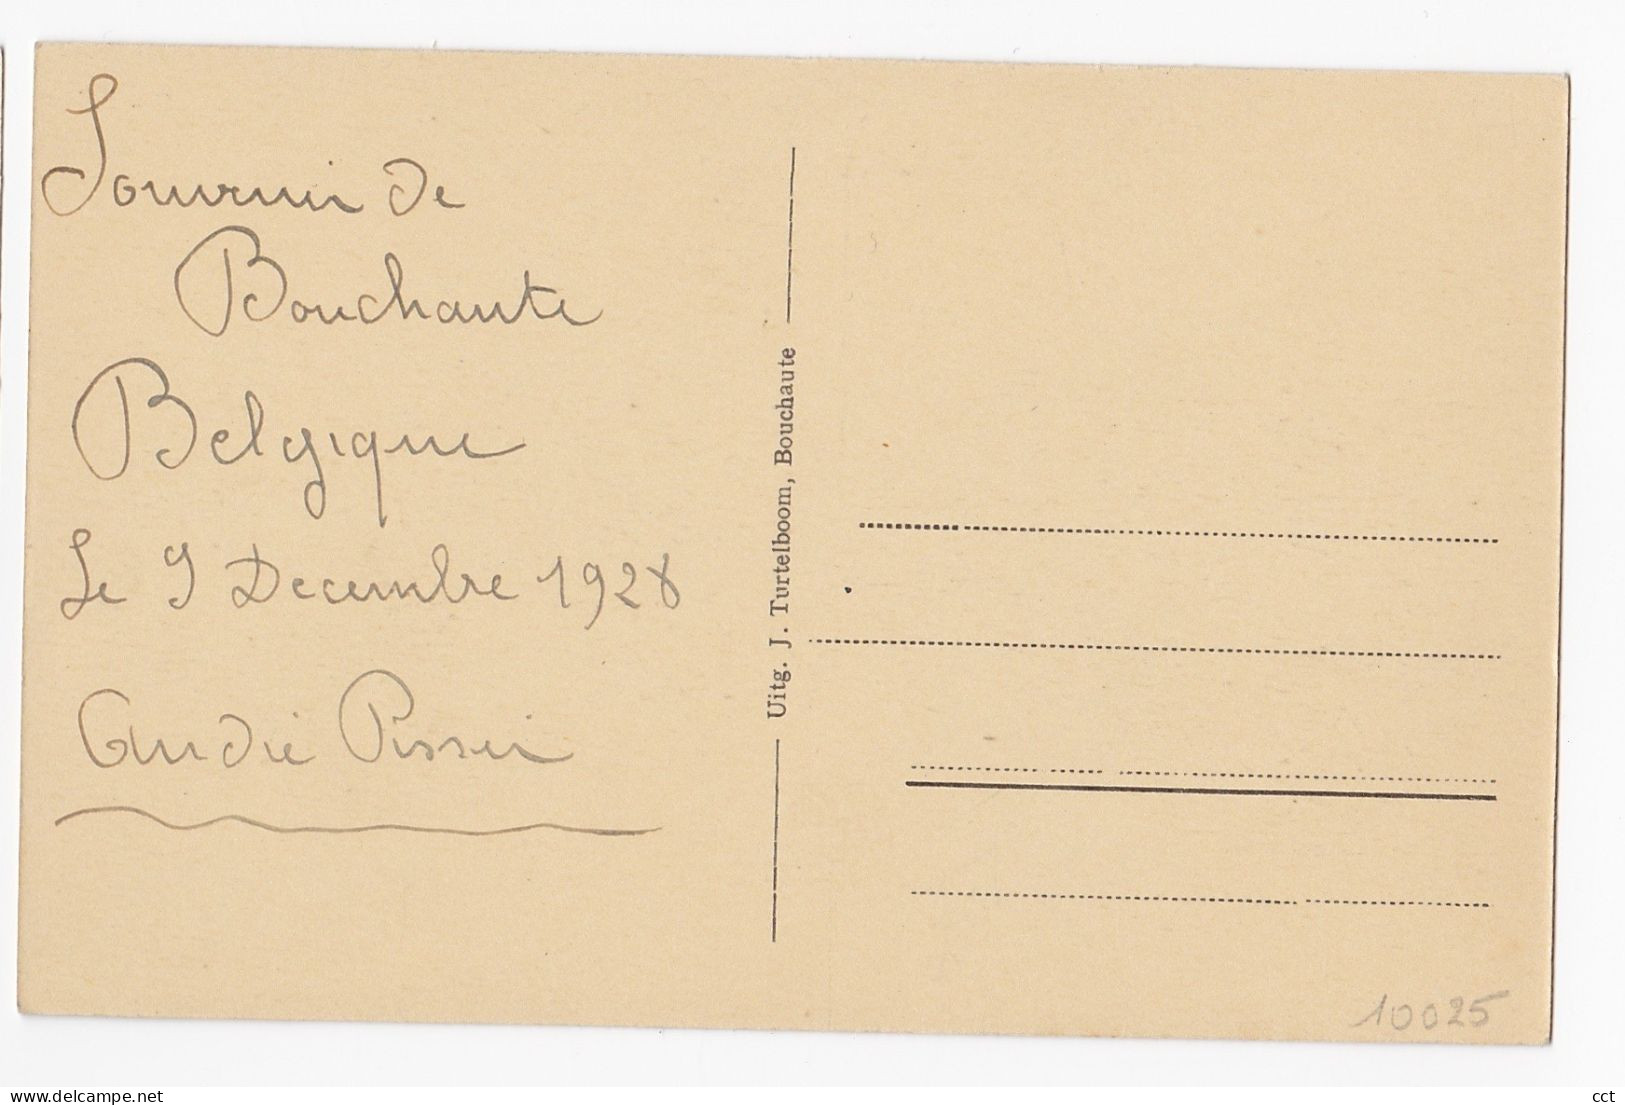 Souvenir de
Bouchaute
Belgique
Le 9 Decembre 1928
André
Uitg. J. Turtelboom, Bouchaute
10025
www.delcampe.net
cct